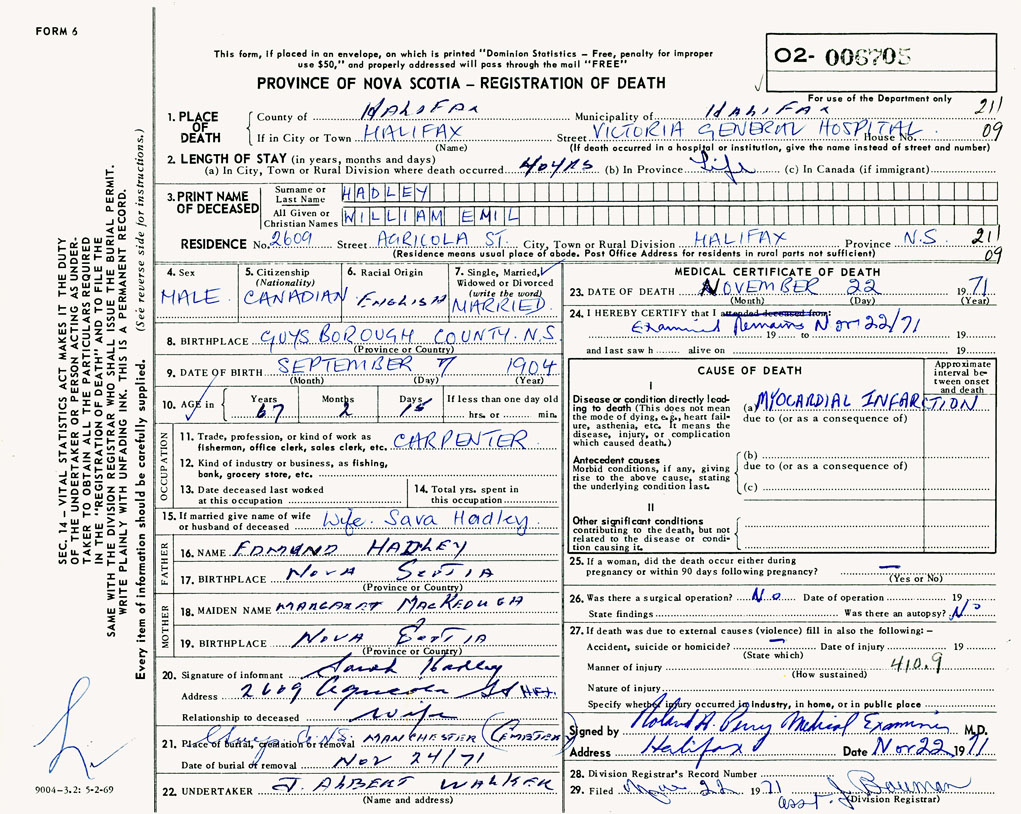 FORM 6
This form, if placed in an envelope, on which is printed "Dominion Statistics – Free, penalty for improper
use $50," and properly addressed will pass through the mail "FREE"
O2- 006705
PROVINCE OF NOVA SCOTIA – REGISTRATION OF DEATH
For use of the Department only
1. PLACE OF DEATH
County of HALIFAX Municipality of HALIFAX 211
If in City or Town HALIFAX Street VICTORIA GENERAL HOSPITAL House No. 09
(Name) (If death occurred in a hospital or institution, give the name instead of street and number)
2. LENGTH OF STAY (in years, months and days)
(a) In City, Town or Rural Division where death occurred 40 YRS (b) In Province Life (c) In Canada (if immigrant)
3. PRINT NAME OF DECEASED
Surname or Last Name HADLEY
All Given or Christian Names WILLIAM EMIL
RESIDENCE No. 2609 Street AGRICOLA ST. City, Town or Rural Division HALIFAX Province N.S. 211
(Residence means usual place of abode. Post Office Address for residents in rural parts not sufficient) 09
4. Sex MALE
5. Citizenship (Nationality) CANADIAN
6. Racial Origin ENGLISH
7. Single, Married, Widowed or Divorced (write the word) MARRIED.
8. BIRTHPLACE GUYSBOROUGH COUNTY. N.S.
(Province or Country)
9. DATE OF BIRTH SEPTEMBER 7 1904
(Month) (Day) (Year)
10. AGE in Years 67 Months 2 Days 15 If less than one day old
hrs. or min.
OCCUPATION
11. Trade, profession, or kind of work as
fisherman, office clerk, sales clerk, etc. CARPENTER
12. Kind of industry or business, as fishing,
bank, grocery store, etc.
13. Date deceased last worked
at this occupation
14. Total yrs. spent in
this occupation
15. If married give name of wife
or husband of deceased Wife. Sava Hadley
FATHER
16. NAME EDMUND HADLEY
17. BIRTHPLACE NOVA SCOTIA
(Province or Country)
MOTHER
18. MAIDEN NAME MARGARET MACKEOUGH
19. BIRTHPLACE NOVA SCOTIA
(Province or Country)
20. Signature of informant Sarah Hadley
Address 2609 Agricola St HFX.
Relationship to deceased Wife
21. Place of burial, cremation or removal MANCHESTER (CEMETERY)
Date of burial or removal NOV 24/71
22. UNDERTAKER J. ALBERT WALKER
(Name and address)
MEDICAL CERTIFICATE OF DEATH
23. DATE OF DEATH NOVEMBER 22 1971
(Month) (Day) (Year)
24. I HEREBY CERTIFY that I attended deceased from:
Examined Remains Nov 22/71
19 to 19
and last saw h alive on 19
CAUSE OF DEATH
Approximate interval between onset and death
I
Disease or condition directly leading
to death (This does not
mean the mode of dying, e.g., heart failure,
asthenia, etc. It means the
disease, injury, or complication
which caused death.)
(a) MYOCARDIAL INFARCTION
due to (or as a consequence of)
Antecedent causes
Morbid conditions, if any, giving
rise to the above cause, stating
the underlying condition last.
(b)
due to (or as a consequence of)
(c)
II
Other significant conditions
contributing to the death, but not
related to the disease or condition
causing it.
25. If a woman, did the death occur either during
pregnancy or within 90 days following pregnancy? —
(Yes or No)
26. Was there a surgical operation? No Date of operation 19
State findings Was there an autopsy? No
27. If death was due to external causes (violence) fill in also the following: –
Accident, suicide or homicide? — Date of injury 19
(State which)
Manner of injury 410.9
(How sustained)
Nature of injury
Specify whether injury occurred in industry, in home, or in public place
Signed by Roland H. Perry Medical Examiner M.D.
Address Halifax Date Nov 22 1971
28. Division Registrar's Record Number
29. Filed Nov. 22 1971 asst. J Bauman
(Division Registrar)
SEC. 14 – VITAL STATISTICS ACT MAKES IT THE DUTY
OF THE UNDERTAKER OR PERSON ACTING AS UNDER-
TAKER TO OBTAIN ALL THE PARTICULARS REQUIRED
IN THE "REGISTRATION OF DEATH" AND TO FILE THE
SAME WITH THE DIVISION REGISTRAR WHO SHALL ISSUE THE BURIAL PERMIT.
WRITE PLAINLY WITH UNFADING INK. THIS IS A PERMANENT RECORD.
Every item of information should be carefully supplied. (See reverse side for instructions.)
9004-3.2: 5-2-69